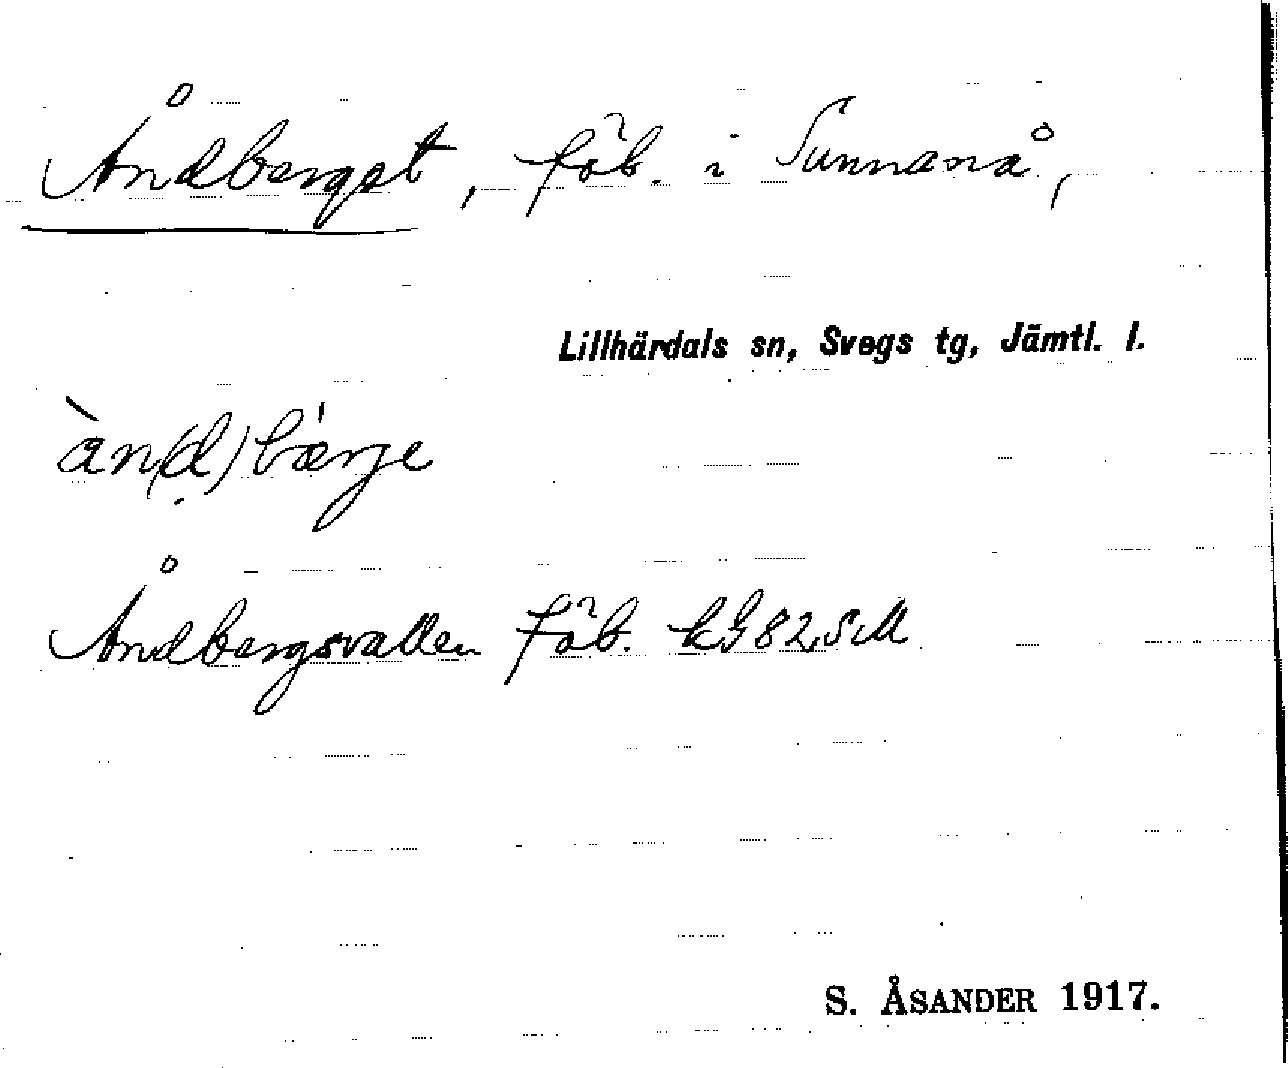 Åndberget, fäb. i Sunnanå,
Lillhärdals sn, Svegs tg, Jämtl. l.
àn(ḍ)bærje
Åndbergsvallen fäb. kG82SM
S. ÅSANDER 1917.